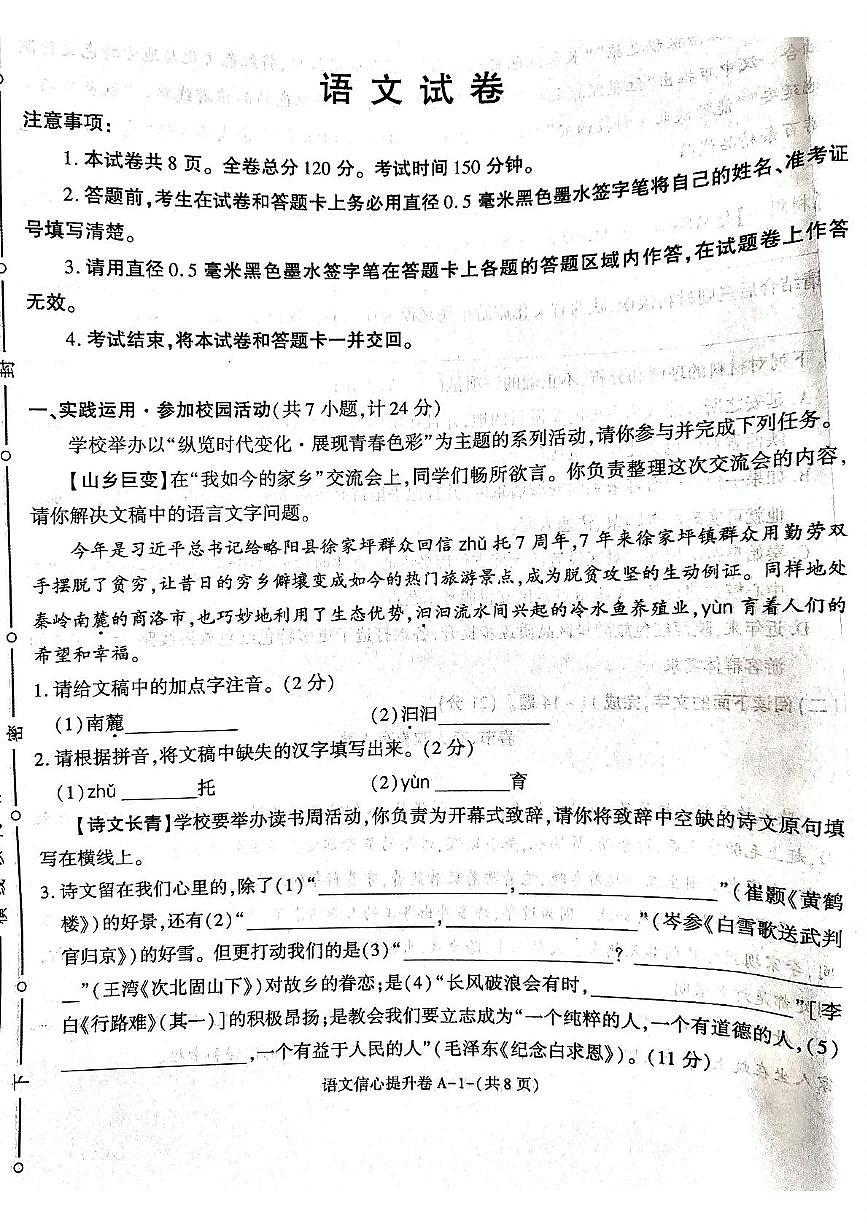 语文试卷
注意事项：
1. 本试卷共8页。全卷总分120分。考试时间150分钟。
2. 答题前，考生在试卷和答题卡上务必用直径0.5毫米黑色墨水签字笔将自己的姓名、准考证
号填写清楚。
3. 请用直径0.5毫米黑色墨水签字笔在答题卡上各题的答题区域内作答，在试题卷上作答
无效。
4. 考试结束，将本试卷和答题卡一并交回。
一、实践运用·参加校园活动（共7小题，计24分）
学校举办以“纵览时代变化·展现青春色彩”为主题的系列活动，请你参与并完成下列任务。
【山乡巨变】在“我如今的家乡”交流会上，同学们畅所欲言。你负责整理这次交流会的内容，
请你解决文稿中的语言文字问题。
今年是习近平总书记给略阳县徐家坪群众回信zhǔ托7周年，7年来徐家坪镇群众用勤劳双
手摆脱了贫穷，让昔日的穷乡僻壤变成如今的热门旅游景点，成为脱贫攻坚的生动例证。同样地处
秦岭南麓的商洛市，也巧妙地利用了生态优势，汩汩流水间兴起的冷水鱼养殖业，yùn育着人们的
希望和幸福。
1. 请给文稿中的加点字注音。（2分）
(1)南麓__________ (2)汩汩__________
2. 请根据拼音，将文稿中缺失的汉字填写出来。（2分）
(1)zhǔ ________托 (2)yùn ________育
【诗文长青】学校要举办读书周活动，你负责为开幕式致辞，请你将致辞中空缺的诗文原句填
写在横线上。
3. 诗文留在我们心里的，除了(1)“__________________，__________________”（崔颢《黄鹤
楼》）的好景，还有(2)“__________________，__________________”（岑参《白雪歌送武判
官归京》）的好雪。但更打动我们的是(3)“__________________？__________________
__”（王湾《次北固山下》）对故乡的眷恋；是(4)“长风破浪会有时，__________________”[李
白《行路难》（其一）]的积极昂扬；是教会我们要立志成为“一个纯粹的人，一个有道德的人，(5)
__________________，一个有益于人民的人”（毛泽东《纪念白求恩》）。（11分）
语文信心提升卷A-1-（共8页）
封
密
下